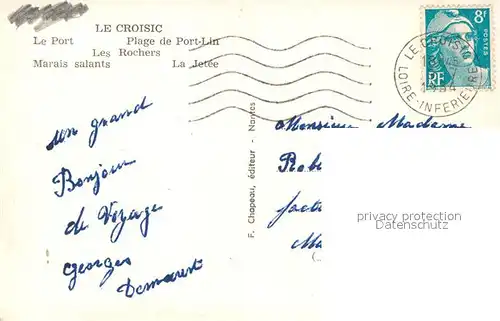 LE CROISIC
Le Port Plage de Port-Lin
Les Rochers
Marais salants La Jetée
8F
POSTES
RF
LE CROISIC
LOIRE-INFERIEURE
un grand
Bonjour
de Voyage
georges
Demarest
F. Chapeau, éditeur - Nantes
Monsieur Madame
Robe
facte
Ma
privacy protection
Datenschutz